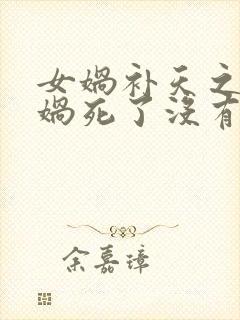 女娲补天之
娲死了没有
余嘉璋